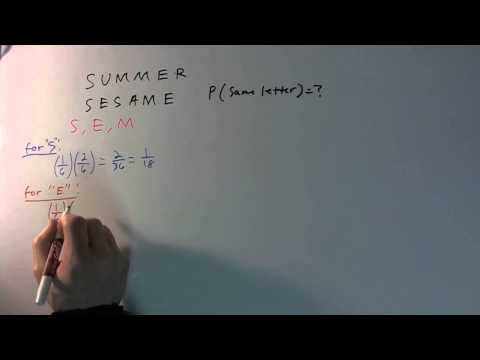 SUMMER
SESAME P(same letter)=?
S, E, M
for "S":
(1/6)(2/6) = 2/36 = 1/18
for "E":
(1/6)(